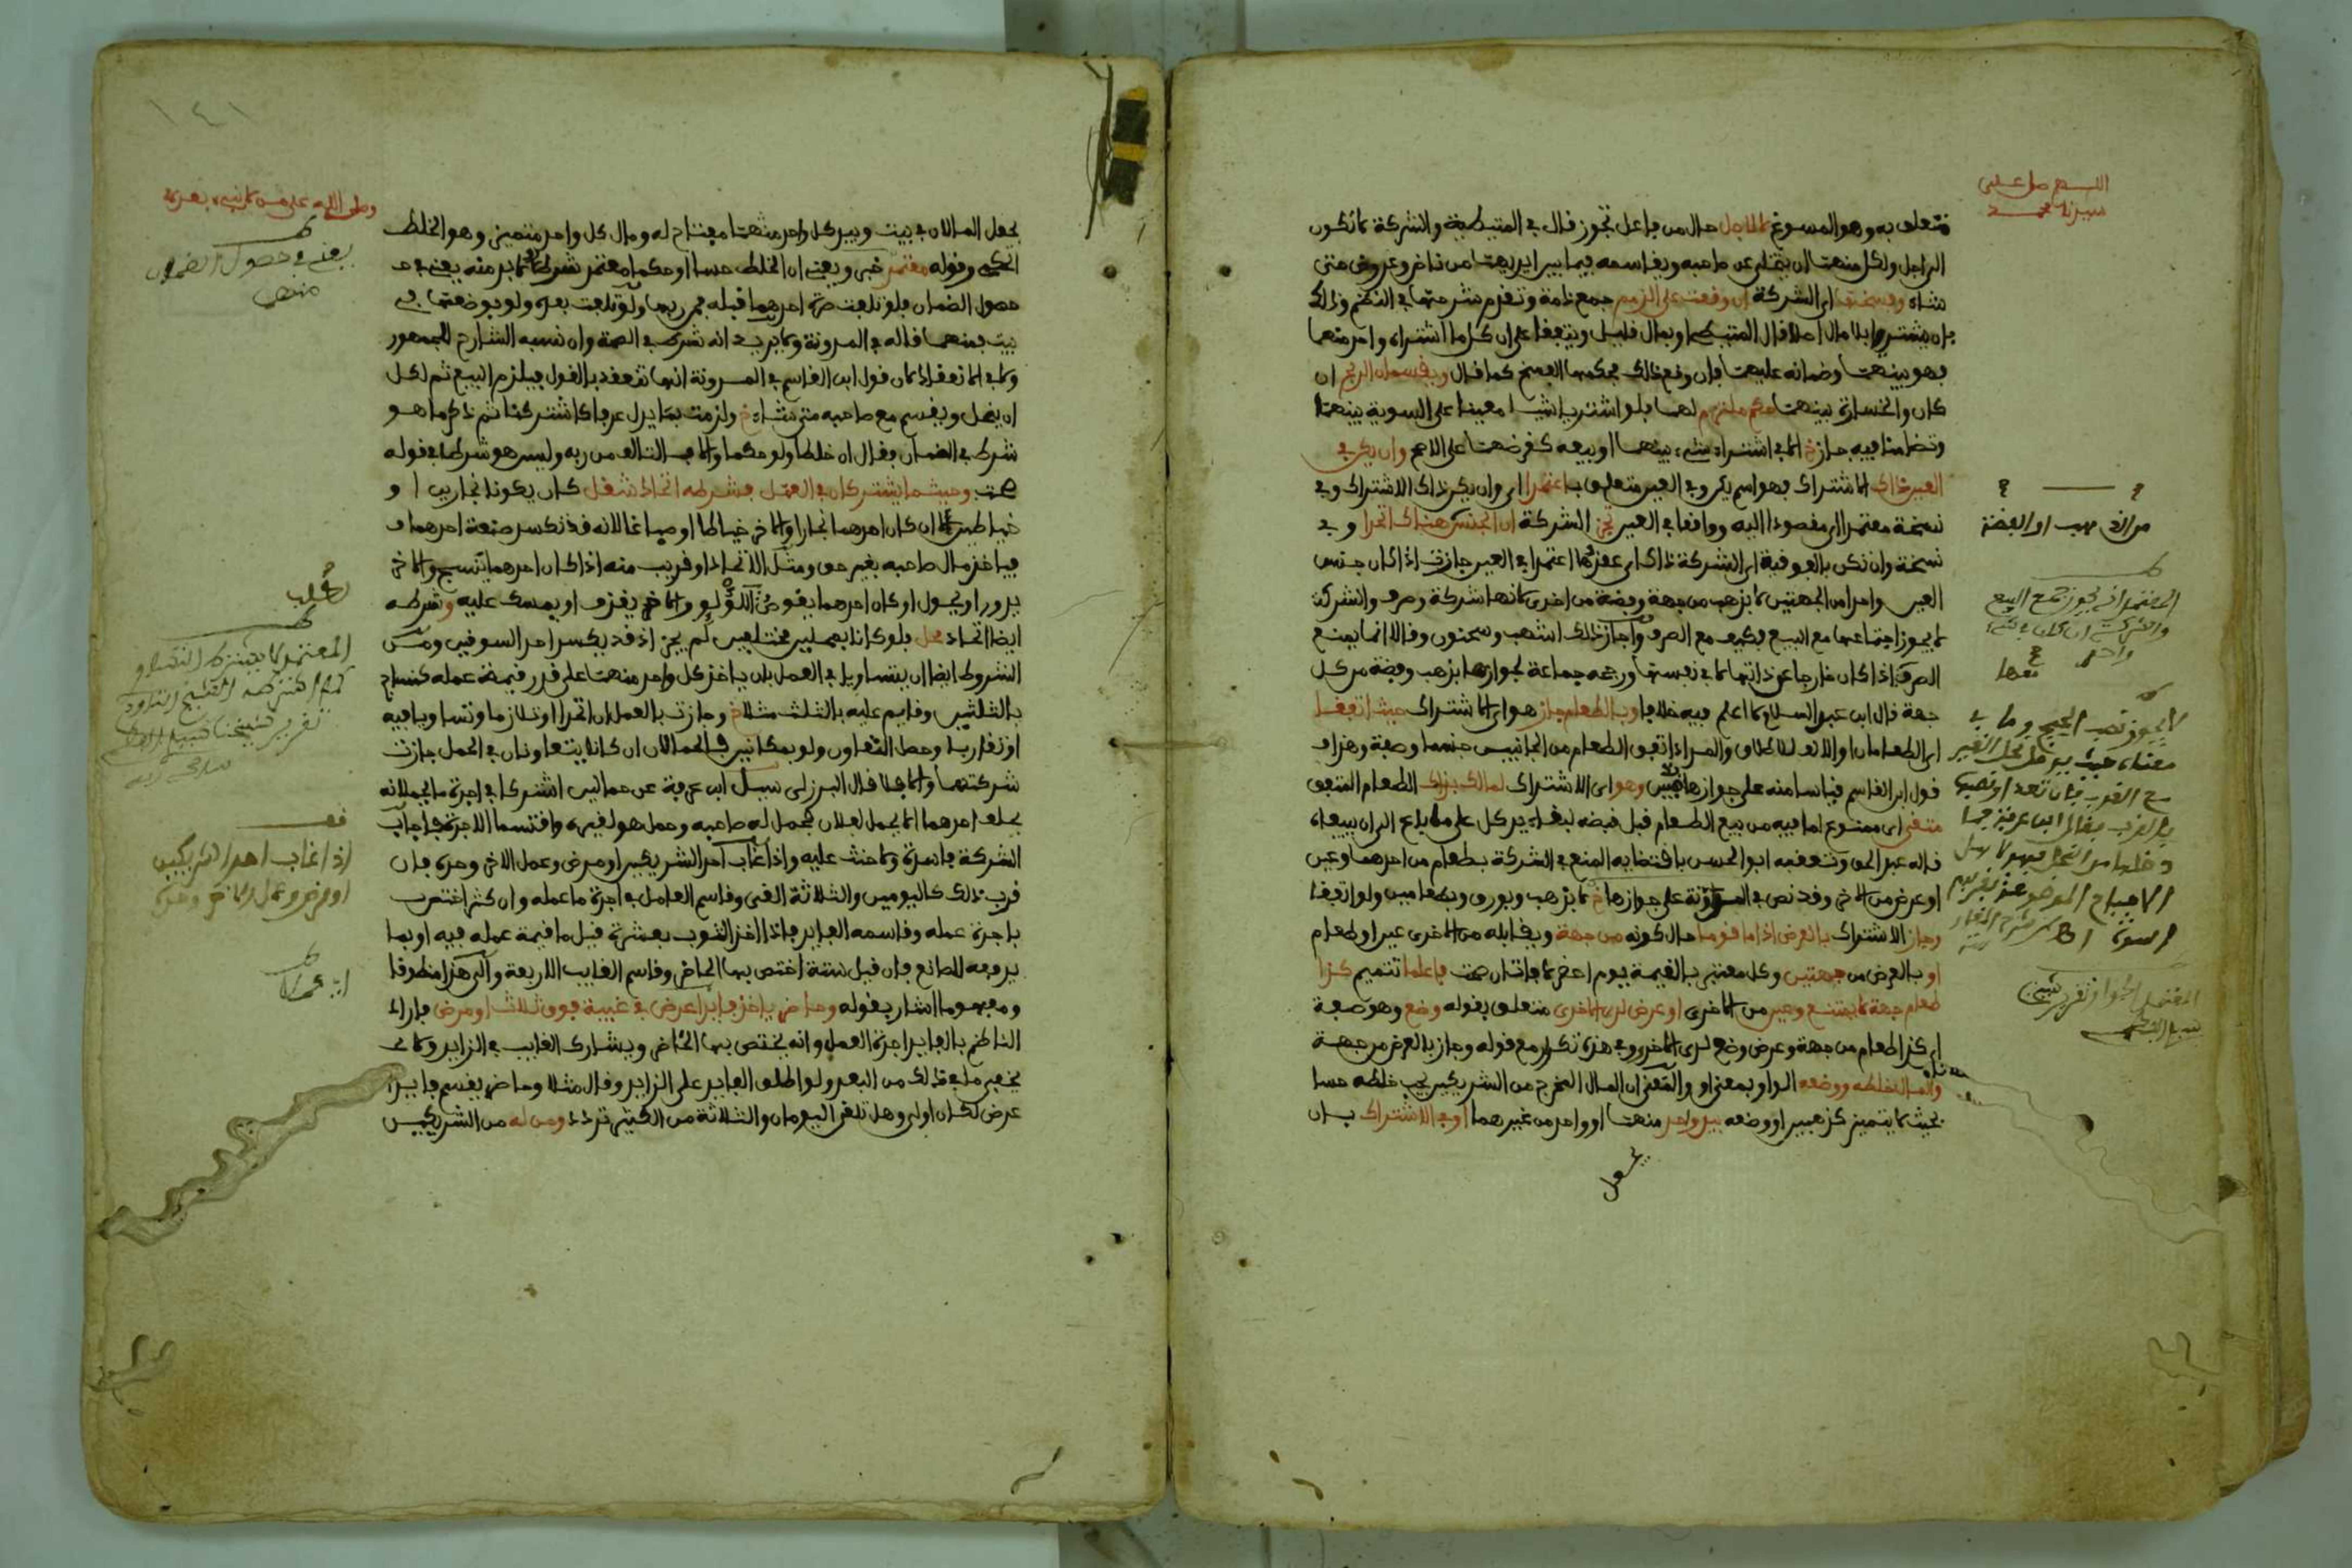 اللهم صل على
سيدنا محمد
متعلق به وهو المسوغ لا للاجل حال من فاعل تجوز قال في المتيطية والشركة لا تكون
الراجل ولكل منهما ان ينحل عن صاحبه ويقاسمه فيما بين ايديهما من ناض وعروض متى
شاء وفسخها اي الشركة ان وقعت على الذمم جمع ذمة وتقدم شرحها في النظم وذلك
بان يشتريا بلا مال اصلا قال المتيطي او بمال قليل ويتفقا على ان كل ما اشتراه واحد منهما
فهو بينهما وضمانه عليهما فان وقع ذلك فحكمها الفسخ كما قال ويقسمان الربح ان
كان والخسارة بينهما حكم ملتزم لهما فلو اشتريا شيئا معينا على السوية بينهما
وتضامنا فيه جاز الا في اشتراء شيء بينهما او بيعه كقرضهما على الاصح وان يكن في
العين ذاك الاشتراك فهو اسم يكن وفي العين متعلق باعتمدا اي وان يكن ذاك الاشتراك وفي
نسخة معتمدا اي مقصودا اليه وواقعا في العين تجز الشركة ان الجنس هناك اتحدا وفي
نسخة وان تكن بالفوقية اي الشركة ذاك اي عقدها اعتمدا في العين جازت اذا كان جنس
العين واحدا من الجهتين لا بذهب من جهة وفضة من اخرى لانها شركة وصرف والشركة
لا يجوز اجتماعها مع البيع فكيف مع الصرف واجاز ذلك اشهب وسحنون وقالا انما يمنع
الصرف اذا كان خارجا عن ذاتها لا في نفسها ورجحه جماعة لجوازها بذهب وفضة من كل
جهة قال ابن عبد السلام لا اعلم فيه خلافا وبالطعام جاز هو اي الاشتراك حيث اتفقا
اي الطعامان او الالف للاطلاق والمراد اتفق الطعام من الجانبين جنسا وصفة وهذا
قول ابن القاسم قياسا منه على جوازها بالعين وهو اي الاشتراك لمالك بذلك الطعام المتفق
متقى اي ممنوع لما فيه من بيع الطعام قبل قبضه لبقاء يد كل على ما باع الى ان يبيعاه
قاله عبد الحق وتعقبه ابو الحسن باقتضائه المنع في الشركة بطعام من احدهما وعين
او عرض من الاخر وقد نص في المدونة على جوازها لا بذهب وبورق وبطعامين ولو اتفقا
وجاز الاشتراك بالعرض اذا ما قوما حال كونه من جهة ويقابله من الاخرى عين او طعام
او بالعرض من جهتين وكل معتبر بالقيمة يوم احضر لا فات ان صحت فاعلما تتميم كذا
طعام جهة لا يمتنع وعين من الاخرى او عرض لدى الاخرى متعلق بقوله وضع وهو صفة
اي كذا طعام من جهة وعرض وضع لدى الاخرى وفي هذه تكرار مع قوله وجاز بالعرض من جهة
والمال خلطه ووضعه الواو بمعنى او والمعنى ان المال المخرج من الشريكين يجب خلطه حسا
بحيث لا يتميز كذهبين او وضعه بيد واحد منهما او واحد من غيرهما او في الاشتراك بان
يجعل
من الذهب او الفضة
المعتمد انه يجوز جمع البيع
والشركة ان كان في شيء
واحد
المعتمد الجواز تقرير شيخنا
١٤١
وصلى الله على من لا نبي بعده
يجعل المالان في بيت وبيد كل واحد منهما مفتاح له ومال كل واحد متميز وهو الخلط
الحكمي وقوله معتمد خبر ويعني ان الخلط حسا او حكما معتمد شرطا لا بد منه يعني في
حصول الضمان فلو تلفت صرة احدهما قبله فمن ربها ولو تلفت بعده ولو بوضعهما في
بيت بمنهما قاله في المدونة ولا يريد انه شرط في الصحة وان نسبه الشارح للجمهور
ولا في الانعقاد لان قول ابن القاسم في المدونة انها تنعقد بالقول فيلزم البيع ثم لكل
ان ينحل ويقسم مع صاحبه متى شاء خ ولزمت بما يدل عرفا كاشتركنا ثم ذكر ما هو
شرط في الضمان فقال ان خلطا ولو حكما والا فالتالف من ربه وليس هو شرطا في قوله
صحت وحيثما يشتركان في العمل فشرطه اتحاد شغل كان يكونا نجارين او
خياطين لا ان كان احدهما نجارا والاخر خياطا او صباغا لانه قد تكسد صنعة احدهما
فياخذ مال صاحبه بغير حق ومثل الاتحاد او قريب منه اذا كان احدهما ينسج والاخر
يدور او يحول او كان احدهما يغوص على اللؤلؤ والاخر يقذف او يمسك عليه وشرطه
ايضا اتحاد محل فلو كانا بمحلين مختلفين لم يجز اذ قد يكسد احد السوقين ومن
الشروط ايضا ان يتساويا في العمل بان ياخذ كل واحد منهما على قدر قيمة عمله كنساج
بالثلثين وقايم عليه بالثلث مثلا خ وجازت بالعمل ان اتحدا او تلازما وتساويا فيه
او تقاربا وحصل التعاون ولو بمكانين فالحمالان ان كانا يتعاونان في الحمل جازت
شركتهما والا فلا قال البرزلي سئل ابن عرفة عن حمالين اشتركا في اجرة ما يحملانه
يحلف احدهما لا يحمل لفلان فحمل له صاحبه وحمل هو لغيره واقتسما الاجرة فاجاب
الشركة فاسدة ولا حنث عليه واذا غاب احد الشريكين او مرض وعمل الاخر وحده فان
قرب ذلك كاليومين والثلاثة الغي وقاسم العامل في اجرة ما عمله وان كثر اختص
باجرة عمله وقاسمه الفايد فاذا اخذ الثوب بعشرة قبل ما قيمة عمله فيه او بما
يدفعه للصانع فان قيل ستة اختص بها الحاضر وقاسم الغايب الاربعة والى هذا منطوقا
ومفهوما اشار بقوله وحاضر ياخذ فايدا عرض في غيبة فوق ثلاث او مرض فاراد
الناظم بالفايد اجرة العمل وانه يختص بها الحاضر ويشارك الغايب في الزايد ولا
يخفى ما في ذلك من البعد ولو اطلق الفايد على الزايد وقال مثلا وحاضر يقسم فايدا
عرض لكان اولى وهل تلغى اليومان والثلاثة من الكثير تردد ومن له من الشريكين
يعني في حصول الضمان
منهما
اذا غاب احد الشريكين
او مرض وعمل الاخر وحده